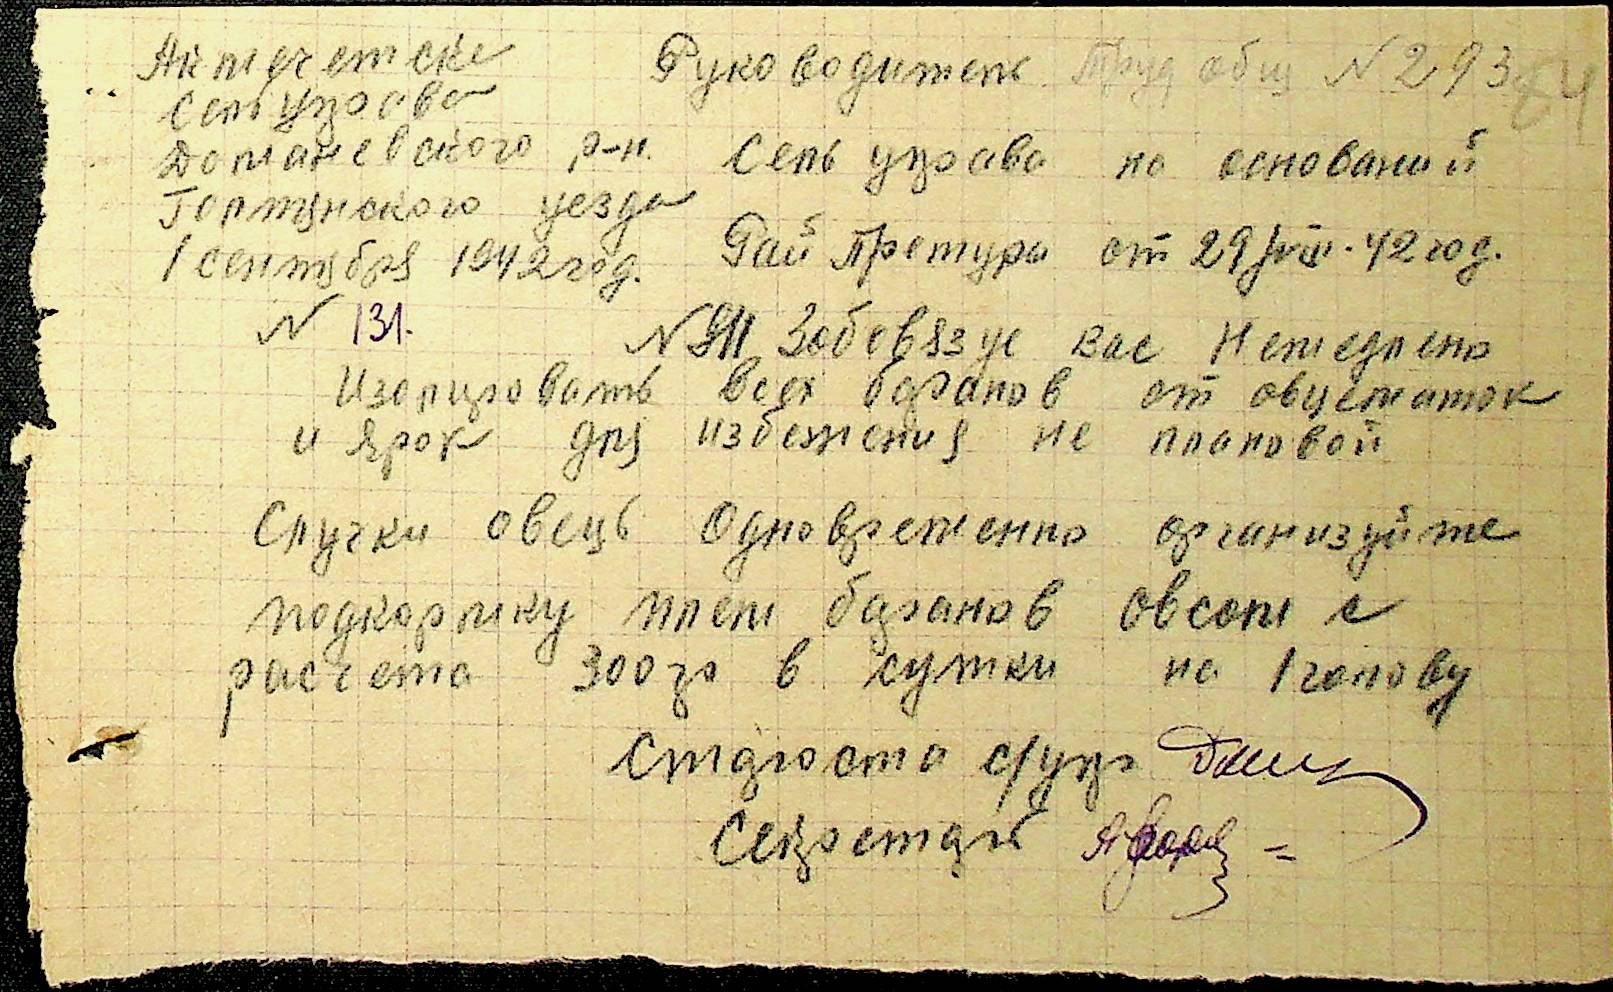 Акмечетске
Сельуправа
Доманевского р-н.
Голтянского уезда
1 сентября 1942 год.
N 131.
Руководитель Труд общ N 2 93
84
Сель управа на оснований
Рай Претуры от 29/VIII-42 год.
N 911 Зобовязуе вас Немедлено
Изолировать всех баранов от овцематок
и ярок для избежения не плановой
Случки овець Одновременно организуйте
подкормку плем баранов овсом с
расчета 300 гр в сутки на 1 голову
Староста с/упр
Секретарь